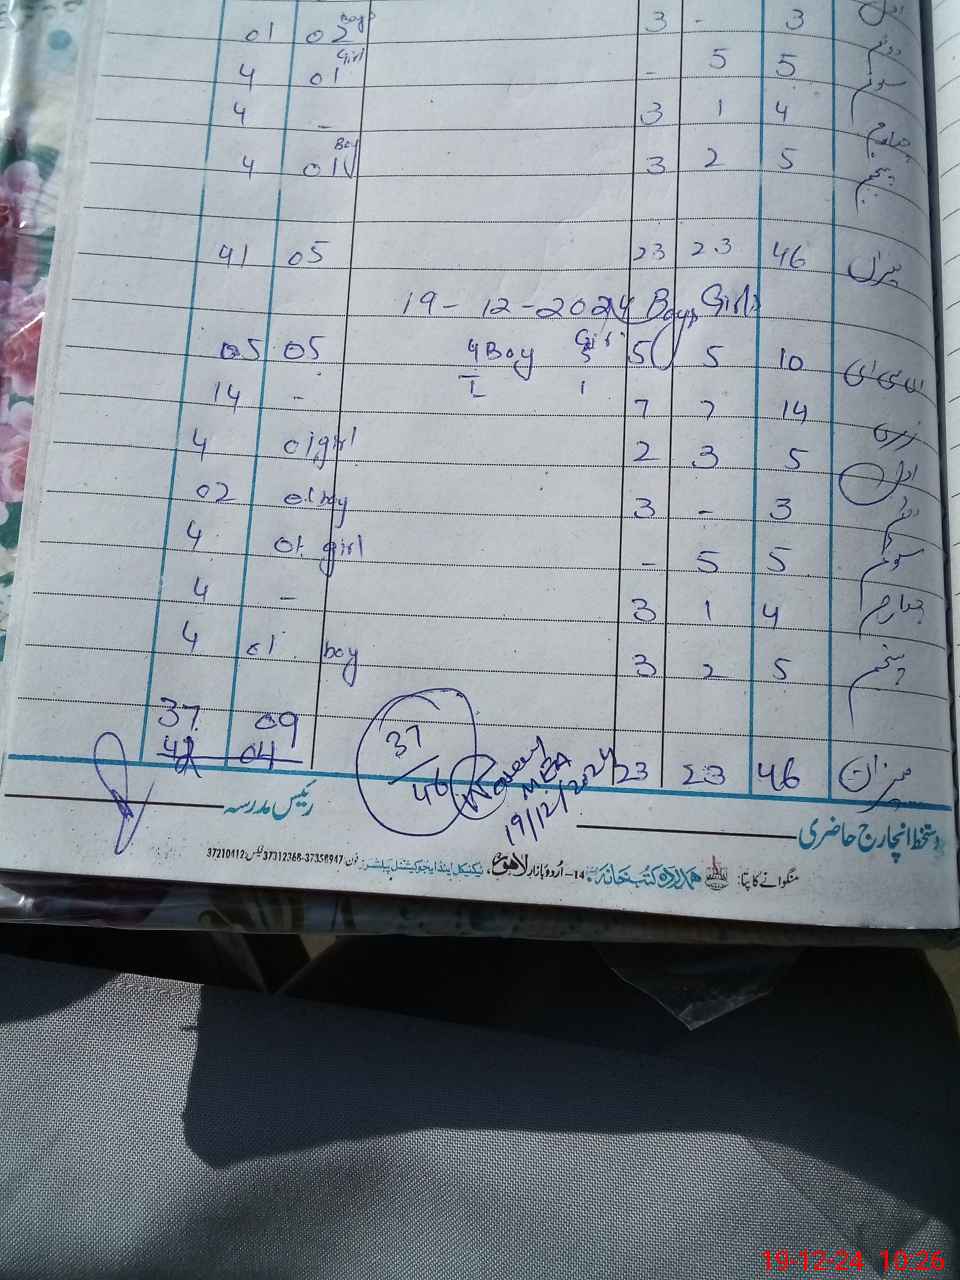 01 02 Boys 3 - 3 اول
4 01 Girl - 5 5 دوئم
4 - 3 1 4 سوئم
4 01 Boy 3 2 5 پنجم
41 05 23 23 46 میزان
19-12-2024 Boys Girls
05 05 4 Boy Girl 5 5 5 10 ای سی ای
1 1
14 - 7 7 14 نرسری
4 01 girl 2 3 5 اول
02 01 boy 3 - 3 دوئم
4 01 girl - 5 5 سوئم
4 - 3 1 4 چہارم
4 01 boy 3 2 5 پنجم
37 09
04
37/46
MEA
19/12/2024
23 23 46 میزان
رئیس مدرسہ
دستخط انچارج حاضری
منگوانے کا پتا: ہمدرد کتب خانہ 14-اُردو بازار لاہور، ٹیکنیکل اینڈ ایجوکیشنل پبلشرز فون 37358947-37312368 فیکس:37210412
19-12-24 10:26